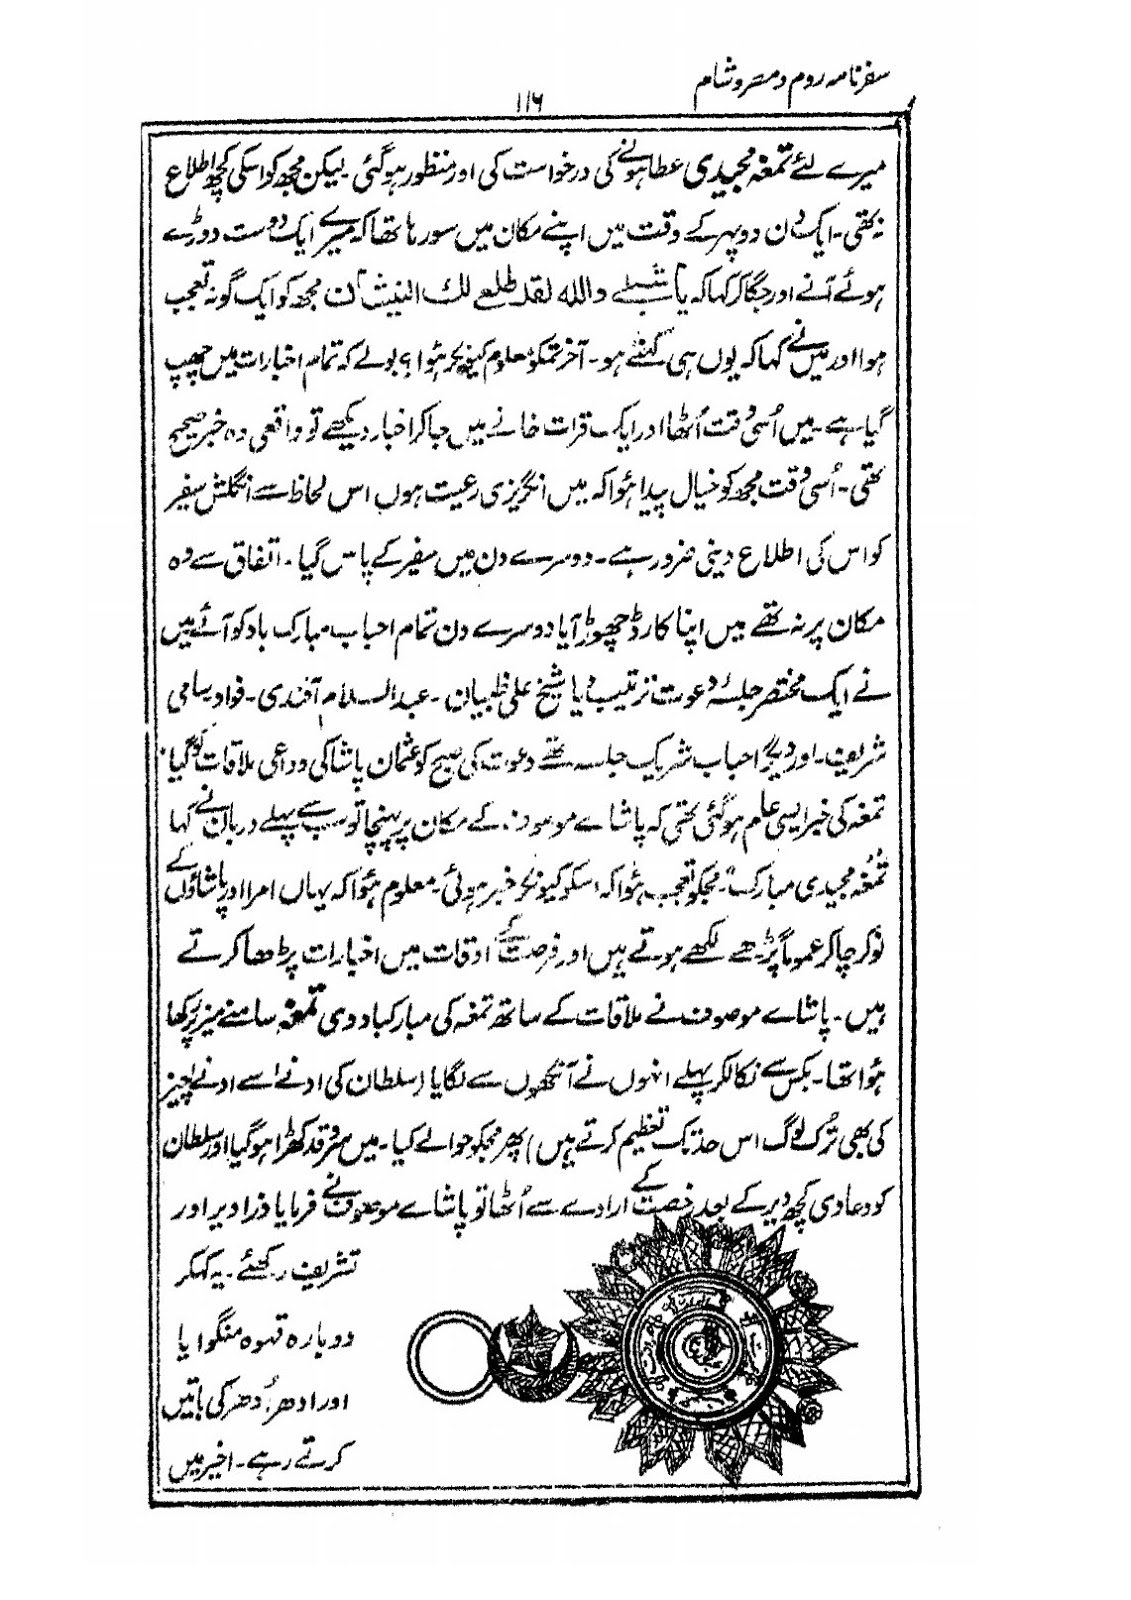 سفرنامہ روم و مصر و شام
۱۱۶
میرے لئے تمغہ مجیدی عطا ہونے کی درخواست کی اور منظور ہوگئی۔ لیکن مجھ کو اسکی کچھ اطلاع
نہ تھی۔ ایک دن دوپہر کے وقت میں اپنے مکان میں سو رہا تھا کہ میرے ایک دوست دوڑے
ہوئے آئے اور جگا کر کہا کہ یا شبلے واللہ لقد طلع لك النیشان مجھ کو ایک گونہ تعجب
ہوا اور میں نے کہا کہ یوں ہی کہتے ہو۔ آخر تمکو معلوم کیونکر ہوا؟ بولے کہ تمام اخبارات میں چھپ
گیا ہے۔ میں اُسی وقت اُٹھا اور ایک قرات خانے میں جا کر اخبار دیکھے تو واقعی وہ خبر صحیح
تھی۔ اُسی وقت مجھ کو خیال پیدا ہوا کہ میں انگریزی رعیت ہوں اس لحاظ سے انگلش سفیر
کو اس کی اطلاع دینی ضرور ہے۔ دوسرے دن میں سفیر کے پاس گیا۔ اتفاق سے وہ
مکان پر نہ تھے میں اپنا کارڈ چھوڑ آیا دوسرے دن تمام احباب مبارک باد کو آئے میں
نے ایک مختصر جلسۂ دعوت ترتیب دیا شیخ علی ظبیان۔ عبدالسلام آفندی۔ فواد سامی
شریف۔ اور دیگر احباب شریک جلسہ تھے دعوت کی صبح کو عثمان پاشا کی وداعی ملاقات کو گیا۔
تمغہ کی خبر ایسی عام ہوگئی تھی کہ پاشاے موصوف کے مکان پر پہنچا تو سب سے پہلے دربان نے کہا
تمغہ مجیدی مبارک" مجکو تعجب ہوا کہ اسکو کیونکر خبر ہوئی۔ معلوم ہوا کہ یہاں امرا اور پاشاؤں کے
نوکر چاکر عموماً پڑھے لکھے ہوتے ہیں اور فرصت کے اوقات میں اخبارات پڑھا کرتے
ہیں۔ پاشاے موصوف نے ملاقات کے ساتھ تمغہ کی مبارکباد دی تمغہ سامنے میز پر رکھا
ہوا تھا۔ بکس سے نکالکر پہلے انہوں نے آنکھوں سے لگایا (سلطان کی ادنے اسے ادنے چیز
کی بھی تُرک لوگ اس حد تک تعظیم کرتے ہیں) پھر مجکو حوالے کیا۔ میں سرو قد کھڑا ہوگیا اور سلطان
کو دعا دی کچھ دیر کے بعد رخصت کے ارادے سے اُٹھا تو پاشاے موصوف نے فرمایا ذرا دیر اور
تشریف رکھئے۔ یہ کہکر
دوبارہ قہوہ منگوایا
اور ادھر اُدھر کی باتیں
کرتے رہے۔ اخیر میں